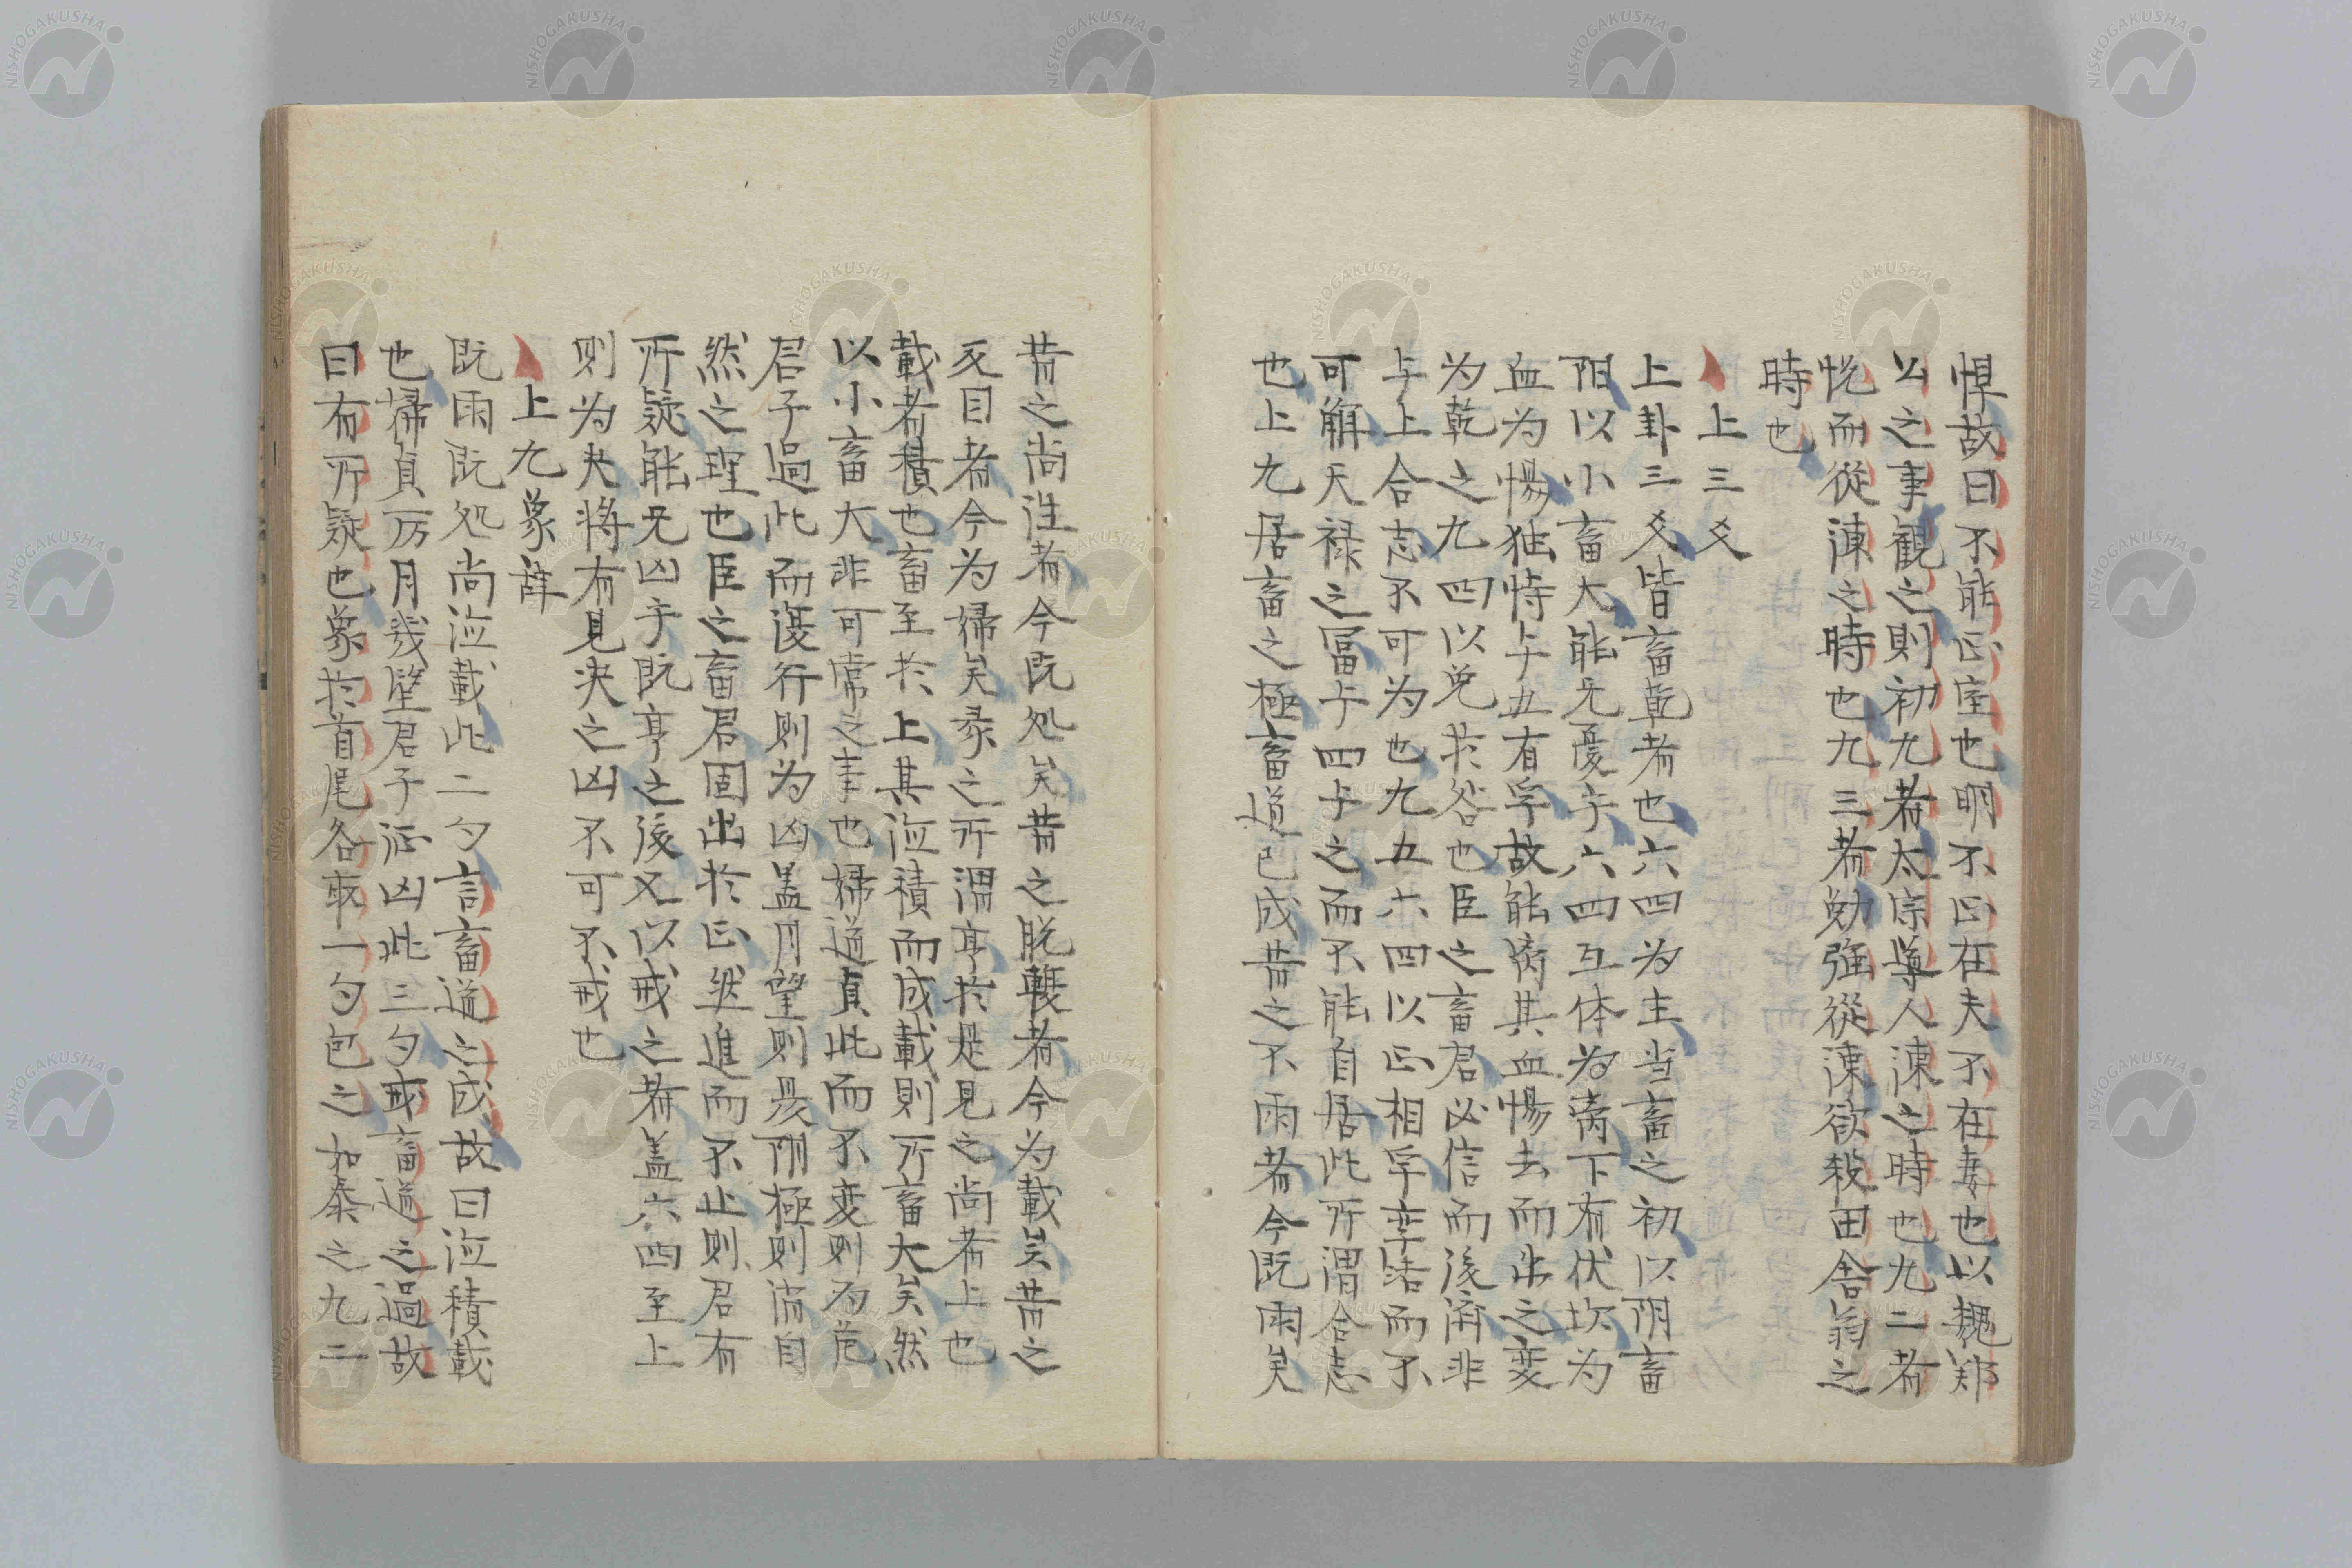 悍故曰不能正室也明不正在夫不在妻也以魏郑
公之事観之則初九者太宗導人諌之時也九二者
悦而從諌之時也九三者勉強從諌欲殺田舎翁之
時也
上三爻
上卦三爻皆畜乾者也六四为主当畜之初以阴畜
阳以小畜大能无憂乎六四互体为离下有伏坎为
血为惕独恃与五有孚故能离其血惕去而出之变
为乾之九四以免於咎也臣之畜君必信而後済非
与上合志不可为也九五六四以正相孚挛恬而不
可觧天禄之冨与四与之而不能自居此所謂合志
也上九居畜之極畜道已成昔之不雨者今既雨矣
昔之尚往者今既処矣昔之脱輹者今为載矣昔之
反目者今为婦矣彖之所謂亨於是見之尚者上也
載者積也畜至於上其泣積而成載則所畜大矣然
以小畜大非可常之事也婦道貞此而不变则为危
君子過此而復行则为凶盖月望则晃阴極则消自
然之理也臣之畜君固出於正然進而不止则君有
所疑能无凶乎既亨之後又以戒之者盖六四至上
则为夬将有見决之凶不可不戒也
上九象辞
既雨既処尚泣載此二句言畜道之成故曰泣積載
也婦貞厉月幾望君子征凶此三句戒畜道之過故
曰有所疑也象於首尾各取一句包之如泰之九二